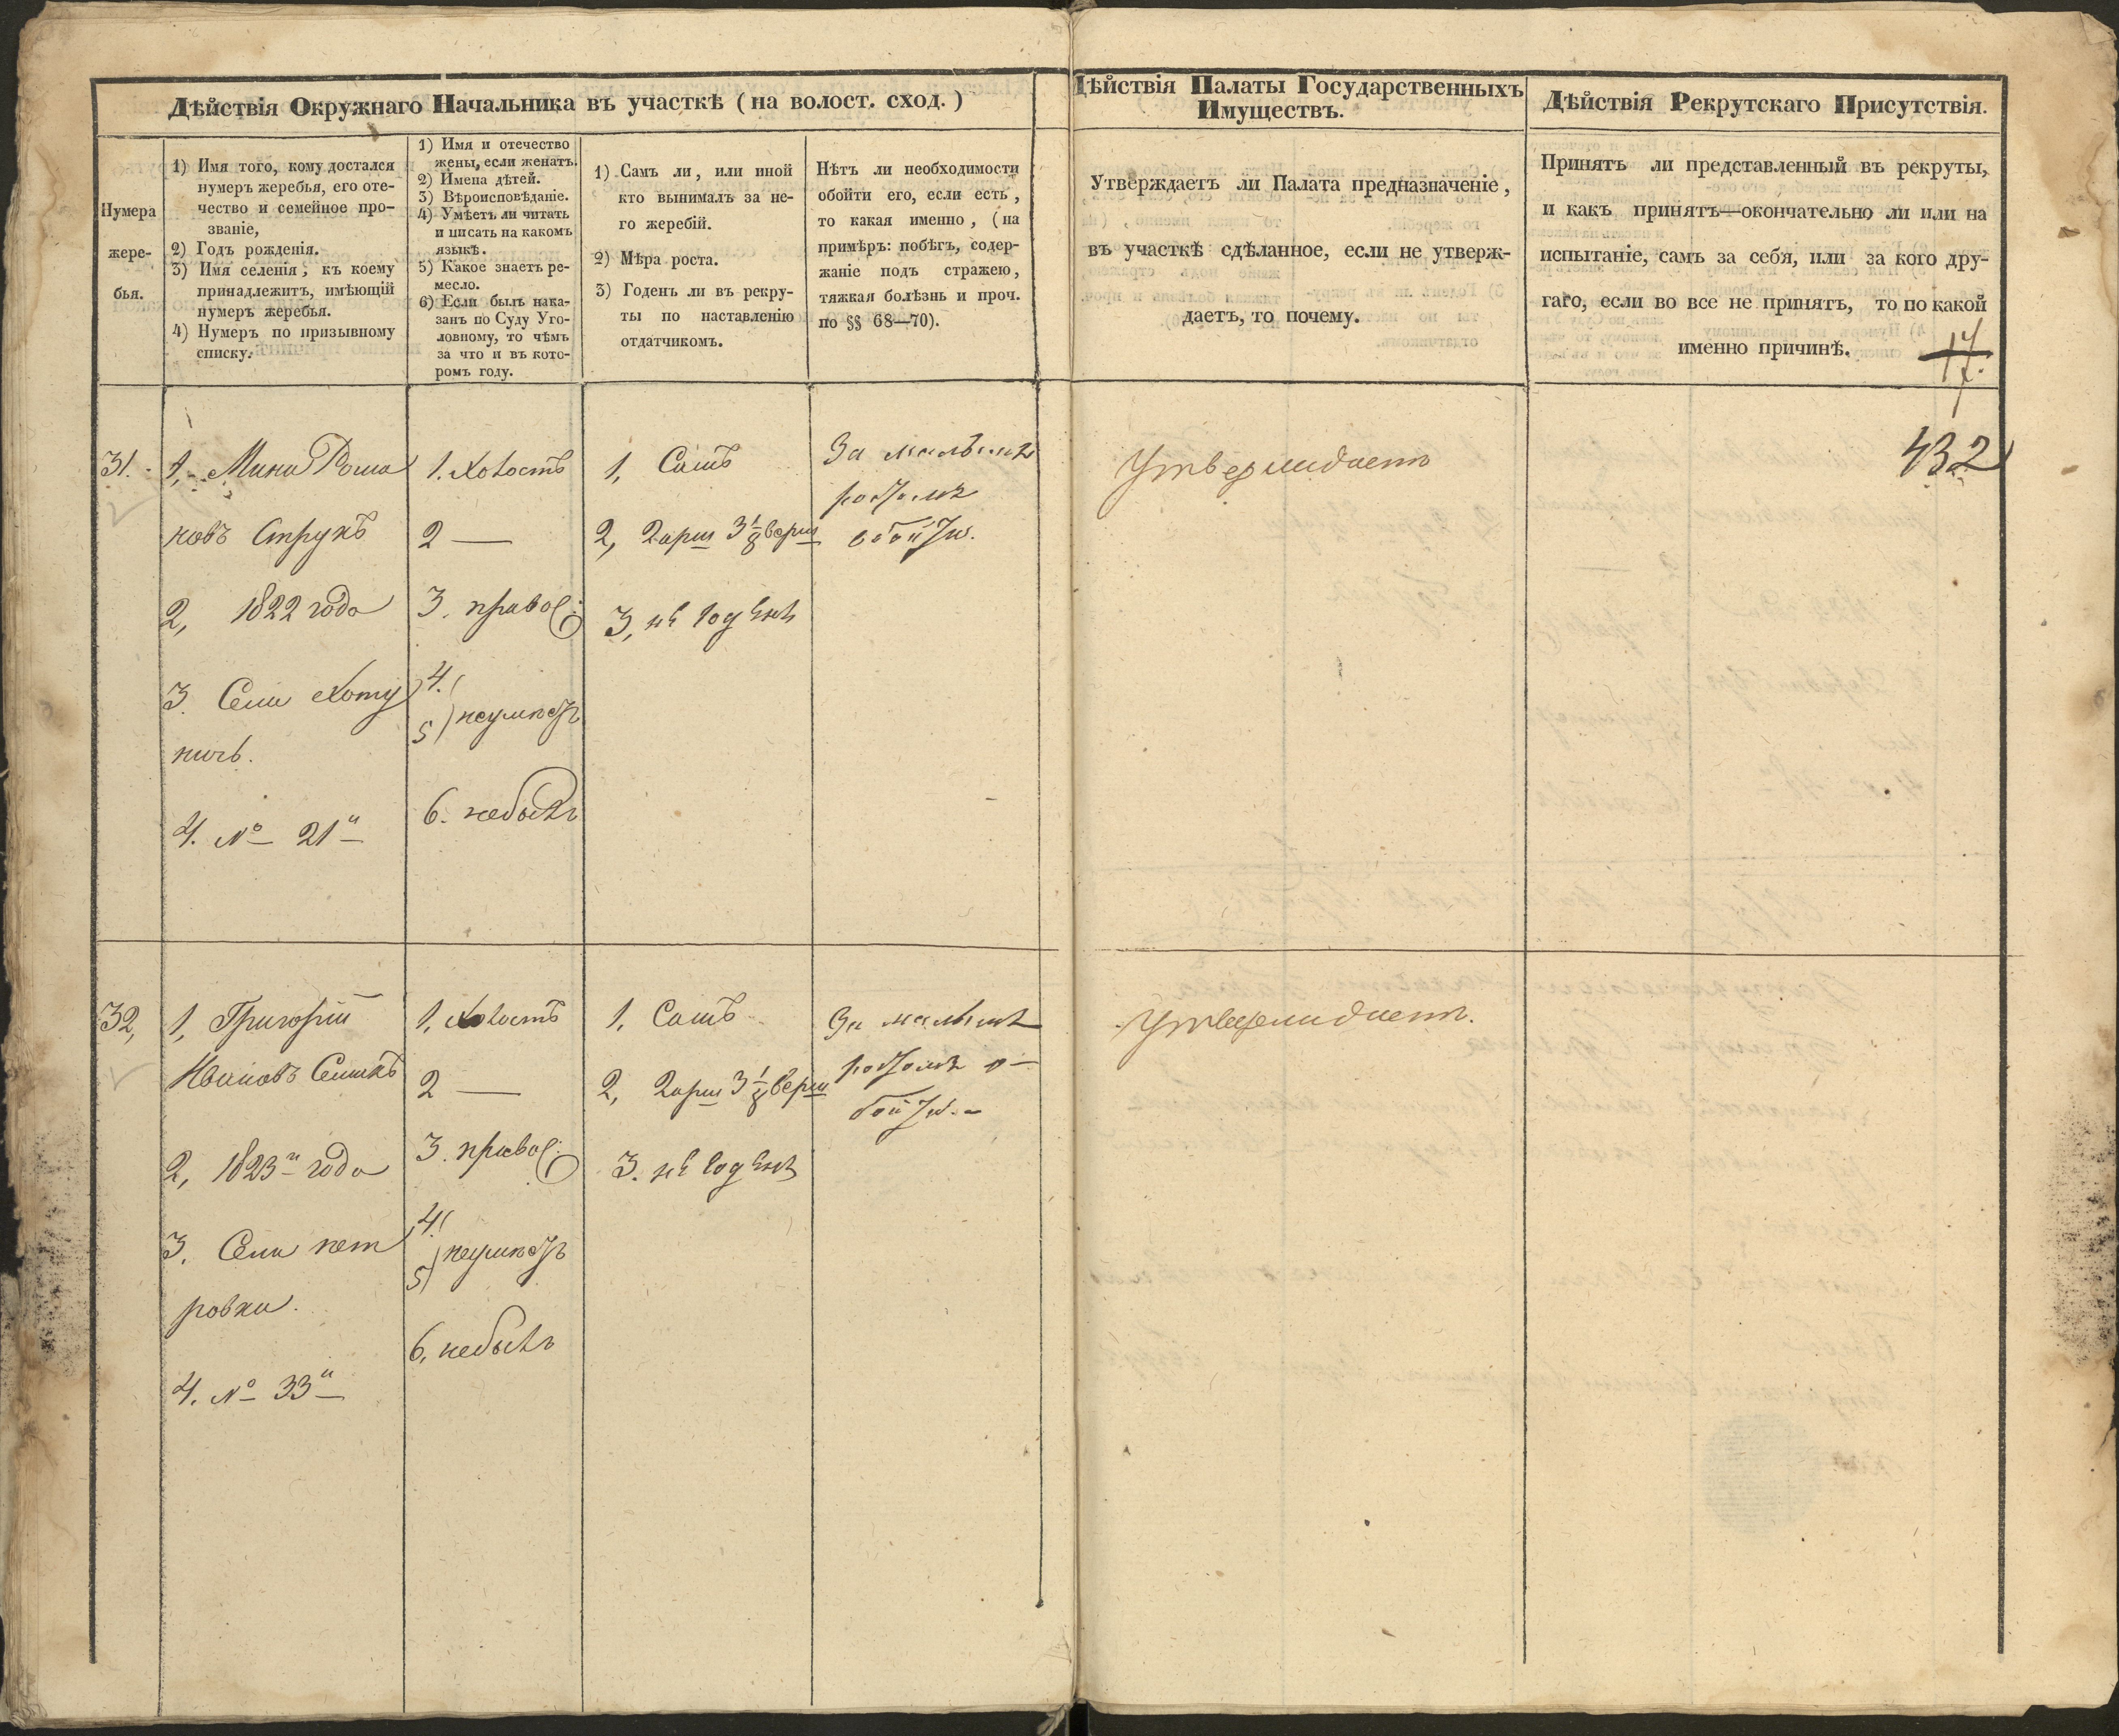 Дѣйствія Окружнаго Начальника въ участкѣ (на волост. сход.)
Нумера
жере-
бья.
1) Имя того, кому достался
нумеръ жеребья, его оте-
чество и семейное про-
званіе,
2) Годъ рожденія.
3) Имя селенія, къ коему
принадлежитъ, имѣющій
нумеръ жеребья.
4) Нумеръ по призывному
списку.
1) Имя и отечество
жены, если женатъ.
2) Имена дѣтей.
3) Вѣроисповѣданіе.
4) Умѣетъ ли читать
и писать на какомъ
языкѣ.
5) Какое знаетъ ре-
месло.
6) Если былъ нака-
занъ по Суду Уго-
ловному, то чѣмъ
за что и въ кото-
ромъ году.
1) Самъ ли, или иной
кто вынималъ за не-
го жеребій.
2) Мѣра роста.
3) Годенъ ли въ рекру-
ты по наставленію
отдатчикомъ.
Нѣтъ ли необходимости
обойти его, если есть,
то какая именно, (на
примѣръ: побѣгъ, содер-
жаніе подъ стражею,
тяжкая болѣзнь и проч.
по §§ 68—70).
Дѣйствія Палаты Государственныхъ
Имуществъ.
Утверждаетъ ли Палата предназначеніе,
въ участкѣ сдѣланное, если не утверж-
даетъ, то почему.
Дѣйствія Рекрутскаго Присутствія.
Принятъ ли представленный въ рекруты,
и какъ принятъ—окончательно ли или на
испытаніе, самъ за себя, или за кого дру-
гаго, если во все не принятъ, то по какой
именно причинѣ.
17.
432
31.
1, Мина Рома
новъ Струкъ
2, 1822 года
3. Села Хоту
ничь.
4. № 21й
1. Холостъ
2 —
3. правос:
4.
5) неумѣетъ
6. небылъ
1, Самъ
2, 2 арш 3 1/8 верш
3, не годенъ
За малымъ
ростомъ
обойти.
Утверждаетъ
32,
1, Григорій
Ивановъ Сешкъ
2, 1823й года
3. Села пет
ровки.
4. № 33й
1, Холостъ
2 —
3. правос:
4.
5) неумѣетъ
6, небылъ
1, Самъ
2, 2 арш 3 1/8 верш
3. не годенъ
За малымъ
ростомъ о—
бойти.—
Утверждаетъ.